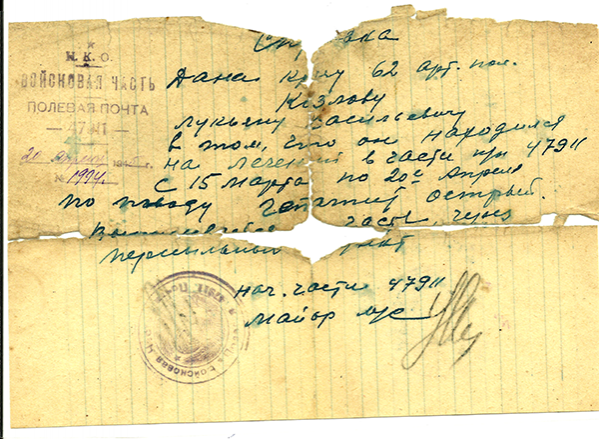 Н.К.О.
ВОЙСКОВАЯ ЧАСТЬ
ПОЛЕВАЯ ПОЧТА
20 апреля 194 г.
№ 1994.
Сп вка
Дана кр-цу 62 арт. пол.
Козлову
Лукьяну Васильевичу
в том, что он находился
на лечении в части пп 47911
с 15 марта по 20е апреля
по поводу гепатит острый.
часть через
пересыльный
нач. части 47911
Майор м/с